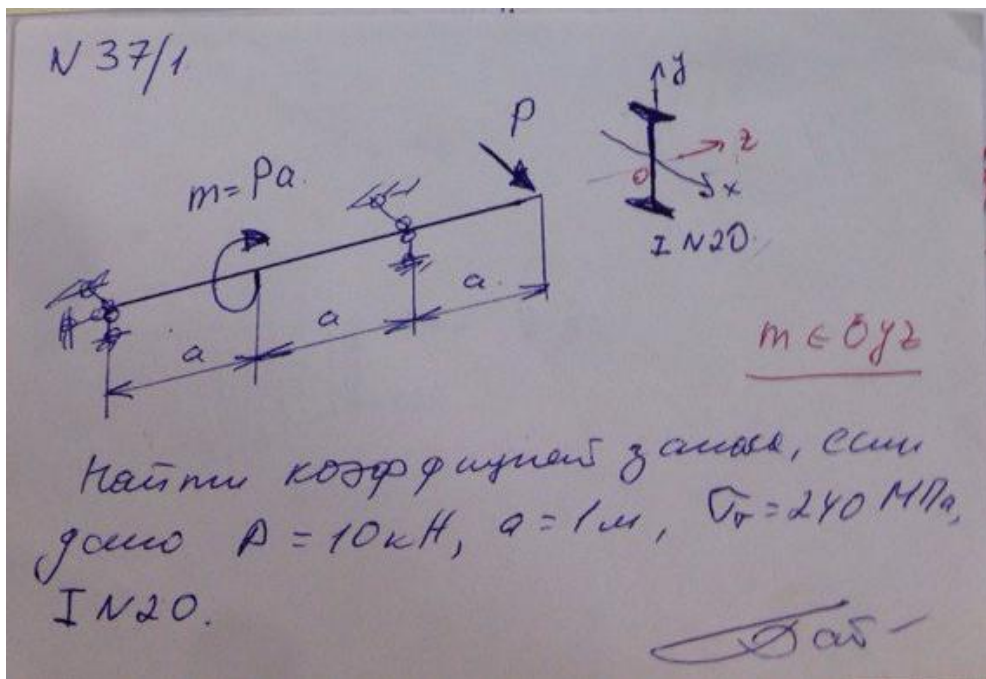 N 37/1
P
y
m=Pa.
z
O
x
I N20.
a
a
a
m ∈ Oyz
Найти коэффициент запаса, если
дано P = 10кН, a = 1м, σт = 240 МПа,
I N20.